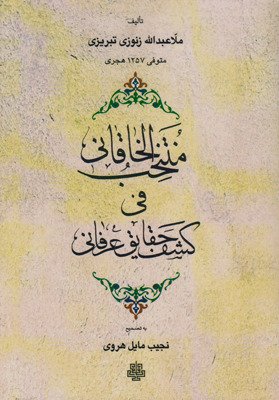 تألیف
ملاعبدالله زنوزی تبریزی
متوفی ۱۲۵۷ هجری
منتخب الخاقانی
فی
کشف حقایق عرفانی
به تصحیح
نجیب مایل هروی